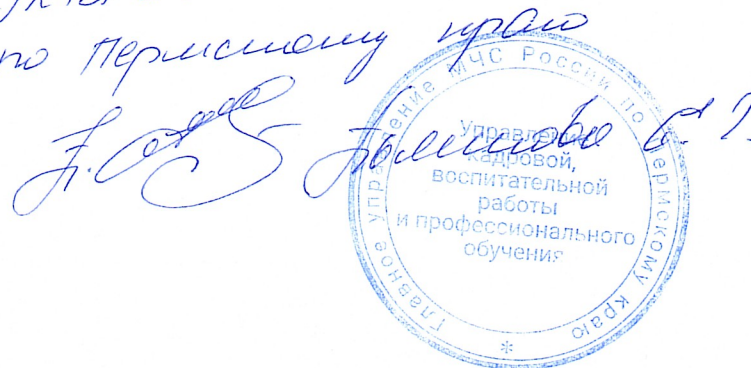 по Пермскому краю
Главное управление МЧС России по Пермскому краю
Управление
кадровой,
воспитательной
работы
и профессионального
обучения
*